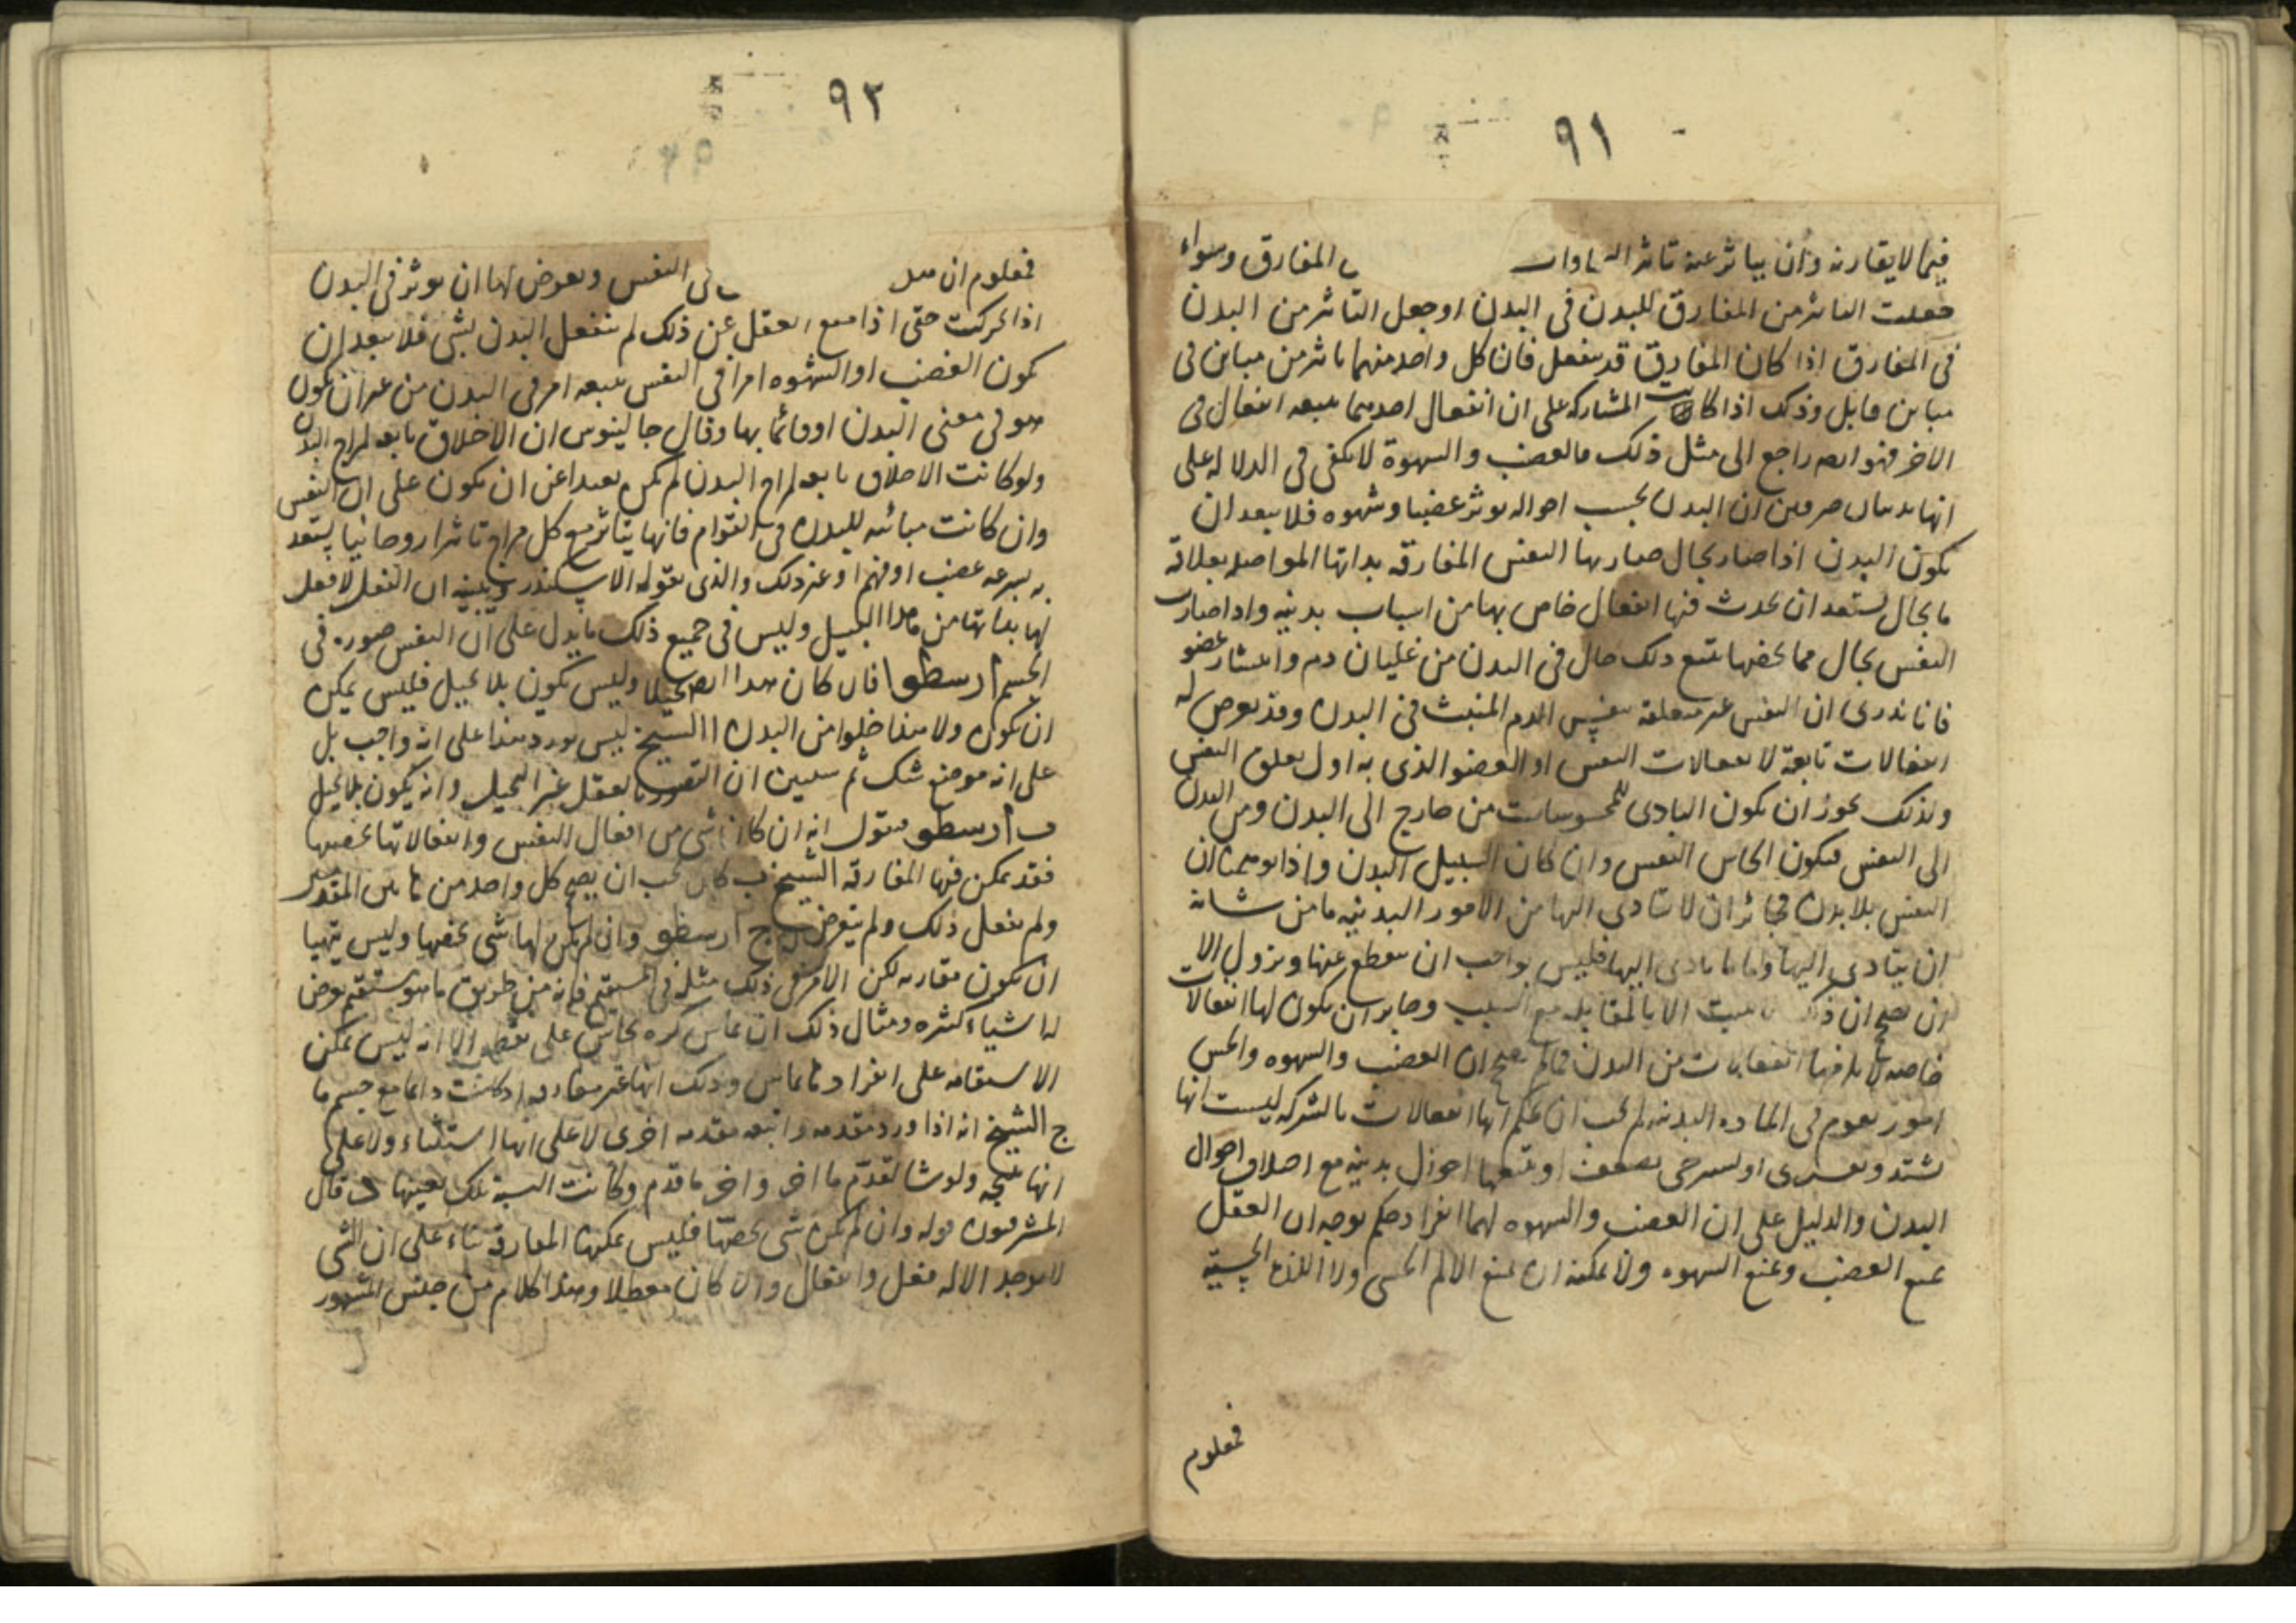 ٩١
فيما لا يقارنه وان يتاثر عنه تاثر المفارق وسواء
جعلت التاثر من المفارق للبدن في البدن او جعل التاثر من البدن
في المفارق اذا كان المفارق قد ينفعل فان كل واحد منهما تاثر من مباين في
مباين قابل وذلك اذا كانت المشاركة على ان انفعال احدهما يتبعه انفعال في
الاخر فهو ايضا راجع الى مثل ذلك فالغضب والشهوة لا يكفى في الدلالة على
ان البدن بحسب احواله يوثر غضبا وشهوه فلا يبعد ان
يكون البدن اذا صار بحال صار بها النفس المفارقه بذاتها المواصله بعلاقة
ما بحال يستعد ان يحدث فيها انفعال خاص بها من اسباب بدنيه واذا صارت
النفس بحال مما يخصها تبع ذلك حال في البدن من غليان دم وانتشار عضو
فانا ندرى ان النفس غير متعلقه بنفس الدم المنبث في البدن وقد يعرض له
انفعالات تابعة لانفعالات النفس او العضو الذى به اول تعلق النفس
وكذلك يجوز ان يكون التادى للمحسوسات من خارج الى البدن ومن البدن
الى النفس فيكون الحاس النفس وان كان السبيل البدن واذا توهمنا ان
النفس بلا بدن فجائز ان لا يتادى اليها من الامور البدنيه ما من شانه
ان يتادى اليها واما ما تادى اليها فليس بواجب ان ينقطع عنها ويزول الا
ان يصح ان ذلك يثبت الا بالمقابله مع السبب وجايز ان يكون لها انفعالات
خاصه انفعالات من البدن فما لم يصح ان الغضب والشهوه والحس
امور تقوم في الماده البدنيه لم يجب ان يحكم انها انفعالات بالشركه ليست انها
تشتد او تسترخى تضعف او تتبعها احوال بدنيه مع اختلاف احوال
البدن والدليل على ان الغضب والشهوه لهما انفراد حكم بوجه ان العقل
يمنع الغضب ويمنع الشهوه ولا يمكنه ان يمنع الالم الحسى ولا اللذة الحسية
فمعلوم
٩٢
فمعلوم ان في النفس ويعرض لها ان يوثر في البدن
اذا تحركت حتى اذا منع العقل عن ذلك لم ينفعل البدن بشئ فلا يبعد ان
يكون الغضب او الشهوه امرا في النفس يتبعه امر في البدن من غير ان يكون
هو في معنى البدن او قائما بها وقال جالينوس ان الاخلاق تابعه لمزاج البدن
ولو كانت الاخلاق تابعه لمزاج البدن لم يكن بعيدا عن ان يكون على ان النفس
وان كانت مباينه للبدن في القوام فانها يتاثر مع كل مزاج تاثرا روحانيا يستعد
به لسرعه غضب او فهم او غير ذلك والذى يقوله الاسكندر وبينه ان الفعل لا فعل
لها بذاتها من التخيل وليس في جميع ذلك ما يدل على ان النفس صوره في
الجسم ا ارسطو فان كان هذا ايضا تخيلا وليس يكون بلا تخيل فليس يمكن
ان يكون ولا هذا خلوا من البدن ا الشيخ ليس يورد هذا على انه واجب بل
على انه موضع شك ثم سيبين ان التصور بالعقل غير التخيل وانه يكون بلا تخيل
ب ارسطو فنقول انه ان كان شى من افعال النفس وانفعالاتها يخصها
فقد يمكن فيها المفارقة الشيخ ب كان يجب ان يصح كل واحد من المقدمتين
ولم يفعل ذلك ولم يتعرض له ج ارسطو وان لم يكن لها شى يخصها وليس يتهيا
ان يكون مفارقه لكن الامر في ذلك مثله في المستقيم فانه من طريق ما هو مستقيم يعرض
له اشياء كثيره ومثال ذلك ان يماس كره نحاس على نقطه الا انه ليس يمكن
الاستقامه على انفرادها تماس وذلك انها غير مفارقه اذ كانت دائما مع جسم ما
ج الشيخ انه اذا اورد مقدمه واتبعه مقدمه اخرى لا على انها استثناء ولا على
انها نتيجه ولو شا لقدم ما اخر واخر ما قدم وكانت النسبة تلك بعينها د قال
المشرقيون قوله وان لم يكن شى يخصها فليس يمكنها المفارقة بناء على ان الشى
لا يوجد الا له فعل وانفعال والا كان معطلا وهذا كلام من جنس المشهور